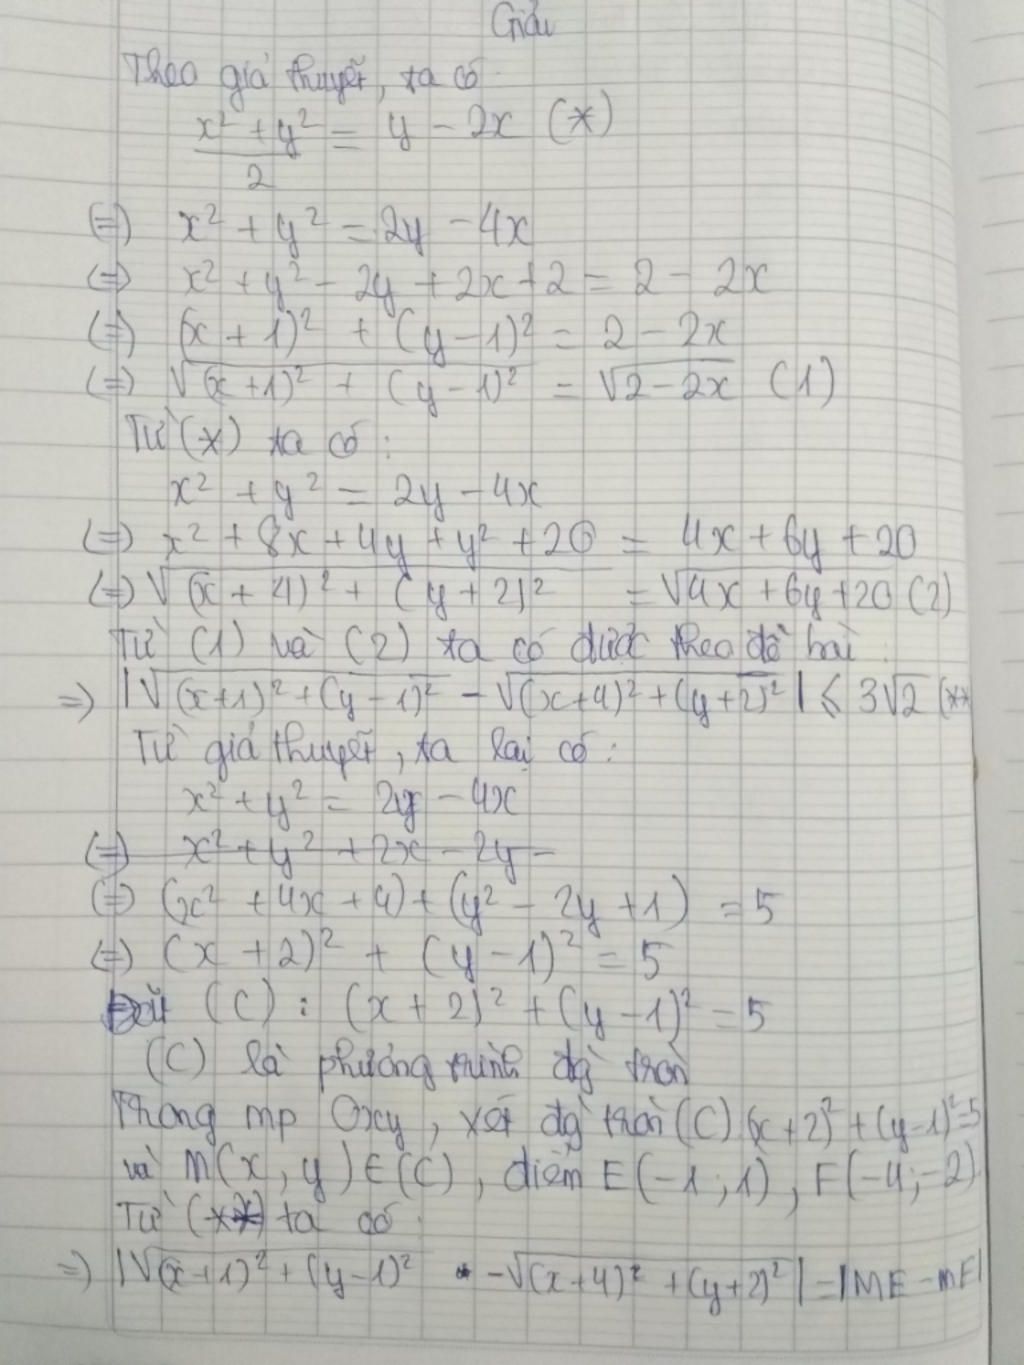 Giải
Theo giả thuyết, ta có
(x² + y²)/2 = y - 2x (*)
(=) x² + y² = 2y - 4x
(=) x² + y² - 2y + 2x + 2 = 2 - 2x
(=) (x + 1)² + (y - 1)² = 2 - 2x
(=) √((x + 1)² + (y - 1)²) = √(2 - 2x) (1)
Từ (*) ta có:
x² + y² = 2y - 4x
(=) x² + 8x + 4y + y² + 20 = 4x + 6y + 20
(=) √((x + 4)² + (y + 2)²) = √(4x + 6y + 20) (2)
Từ (1) và (2) ta có được theo đề bài:
=) |√((x+1)² + (y - 1)²) - √((x+4)² + (y+2)²)| ≤ 3√2 (**
Từ giả thuyết, ta lại có:
x² + y² = 2y - 4x
(=) x² + y² + 2x - 2y =
(=) (x² + 4x + 4) + (y² - 2y + 1) = 5
(=) (x + 2)² + (y - 1)² = 5
Đặt (C): (x + 2)² + (y - 1)² = 5
(C) là phương trình đg tròn
Trong mp Oxy, xét đg tròn (C) (x + 2)² + (y - 1)² = 5
và M(x, y) ∈ (C), điểm E(-1; 1), F(-4; -2)
Từ (**) ta có:
=) |√((x+1)² + (y-1)²) - √((x+4)² + (y+2)²)| = |ME - MF|